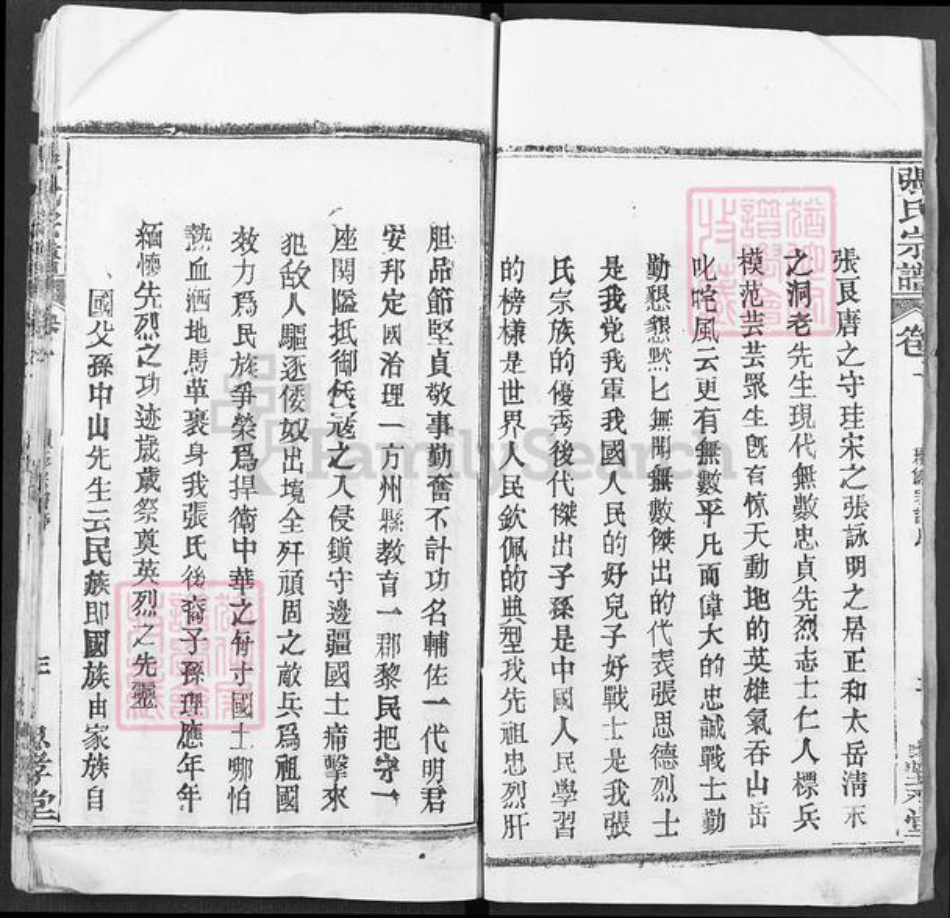 張氏宗譜
卷
張良唐之守珪宋之張詠明之居正和太岳清末
之洞老先生現代無數忠貞先烈志士仁人標兵
模范芸芸眾生旣有惊天動地的英雄氣吞山岳
叱咤風云更有無數平凡而偉大的忠誠戰士勤
勤懇懇默匕無聞無數傑出的代表張思德烈士
是我党我軍我國人民的好兒子好戰士是我張
氏宗族的優秀後代傑出子孫是中國人民學習
的榜樣是世界人民欽佩的典型我先祖忠烈肝
胆品節堅貞敬事勤奮不計功名輔佐一代明君
安邦定國治理一方州縣教育一郡黎民把守一
座関隘抵御侵寇之入侵鎮守邊疆國土痛擊來
犯敌人驅逐倭奴出境全歼頑固之敵兵爲祖國
效力爲民族爭榮爲捍衛中華之每寸國土哪怕
熱血洒地馬革裹身我張氏後裔子孫理應年年
緬懷先烈之功迹歲歲祭奠英烈之先靈
國父孫中山先生云民族即國族由家族自
三
孝堂
FamilySearch